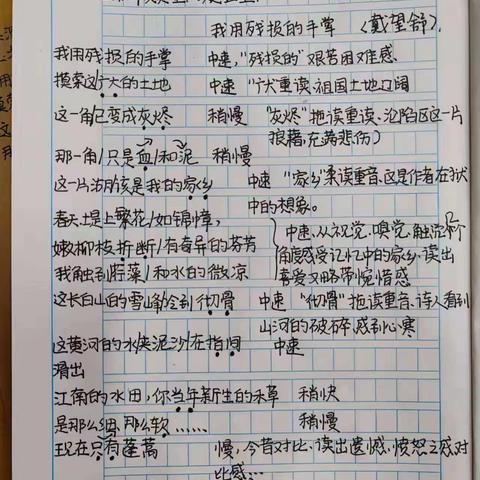 我用残损的手掌 (戴望舒)
我用残损的手掌 中速,"残损的"艰苦困难感.
摸索这/广大的土地 中速 "广大"重读、祖国土地辽阔
这一角/已变成灰烬 稍慢 "灰烬"拖读重读、沦陷区这一片
狼藉,充满悲伤)
那一角/只是血/和泥 稍慢
这一片湖/该是我的家乡 中速 "家乡"柔读重音、这是作者在狱
中的想象。
春天,堤上繁花/如锦幛,
嫩柳枝折断/有奇异的芬芳 中速、从视觉、嗅觉、触觉
角度感受记忆中的家乡、读出
我触到荇藻/和水的微凉 喜爱又略带惋惜感
这长白山的雪峰/冷到/彻骨 中速 "彻骨"拖读重音、诗人看到
山河的破碎,感到心寒
这黄河的水/夹泥沙/在指间 中速
滑出
江南的水田,你当年新生的禾草 稍快
是那么细,那么软…… 稍慢
现在只有蓬蒿 慢,今昔对比、读出遗憾、愤怒之感,对
比感…